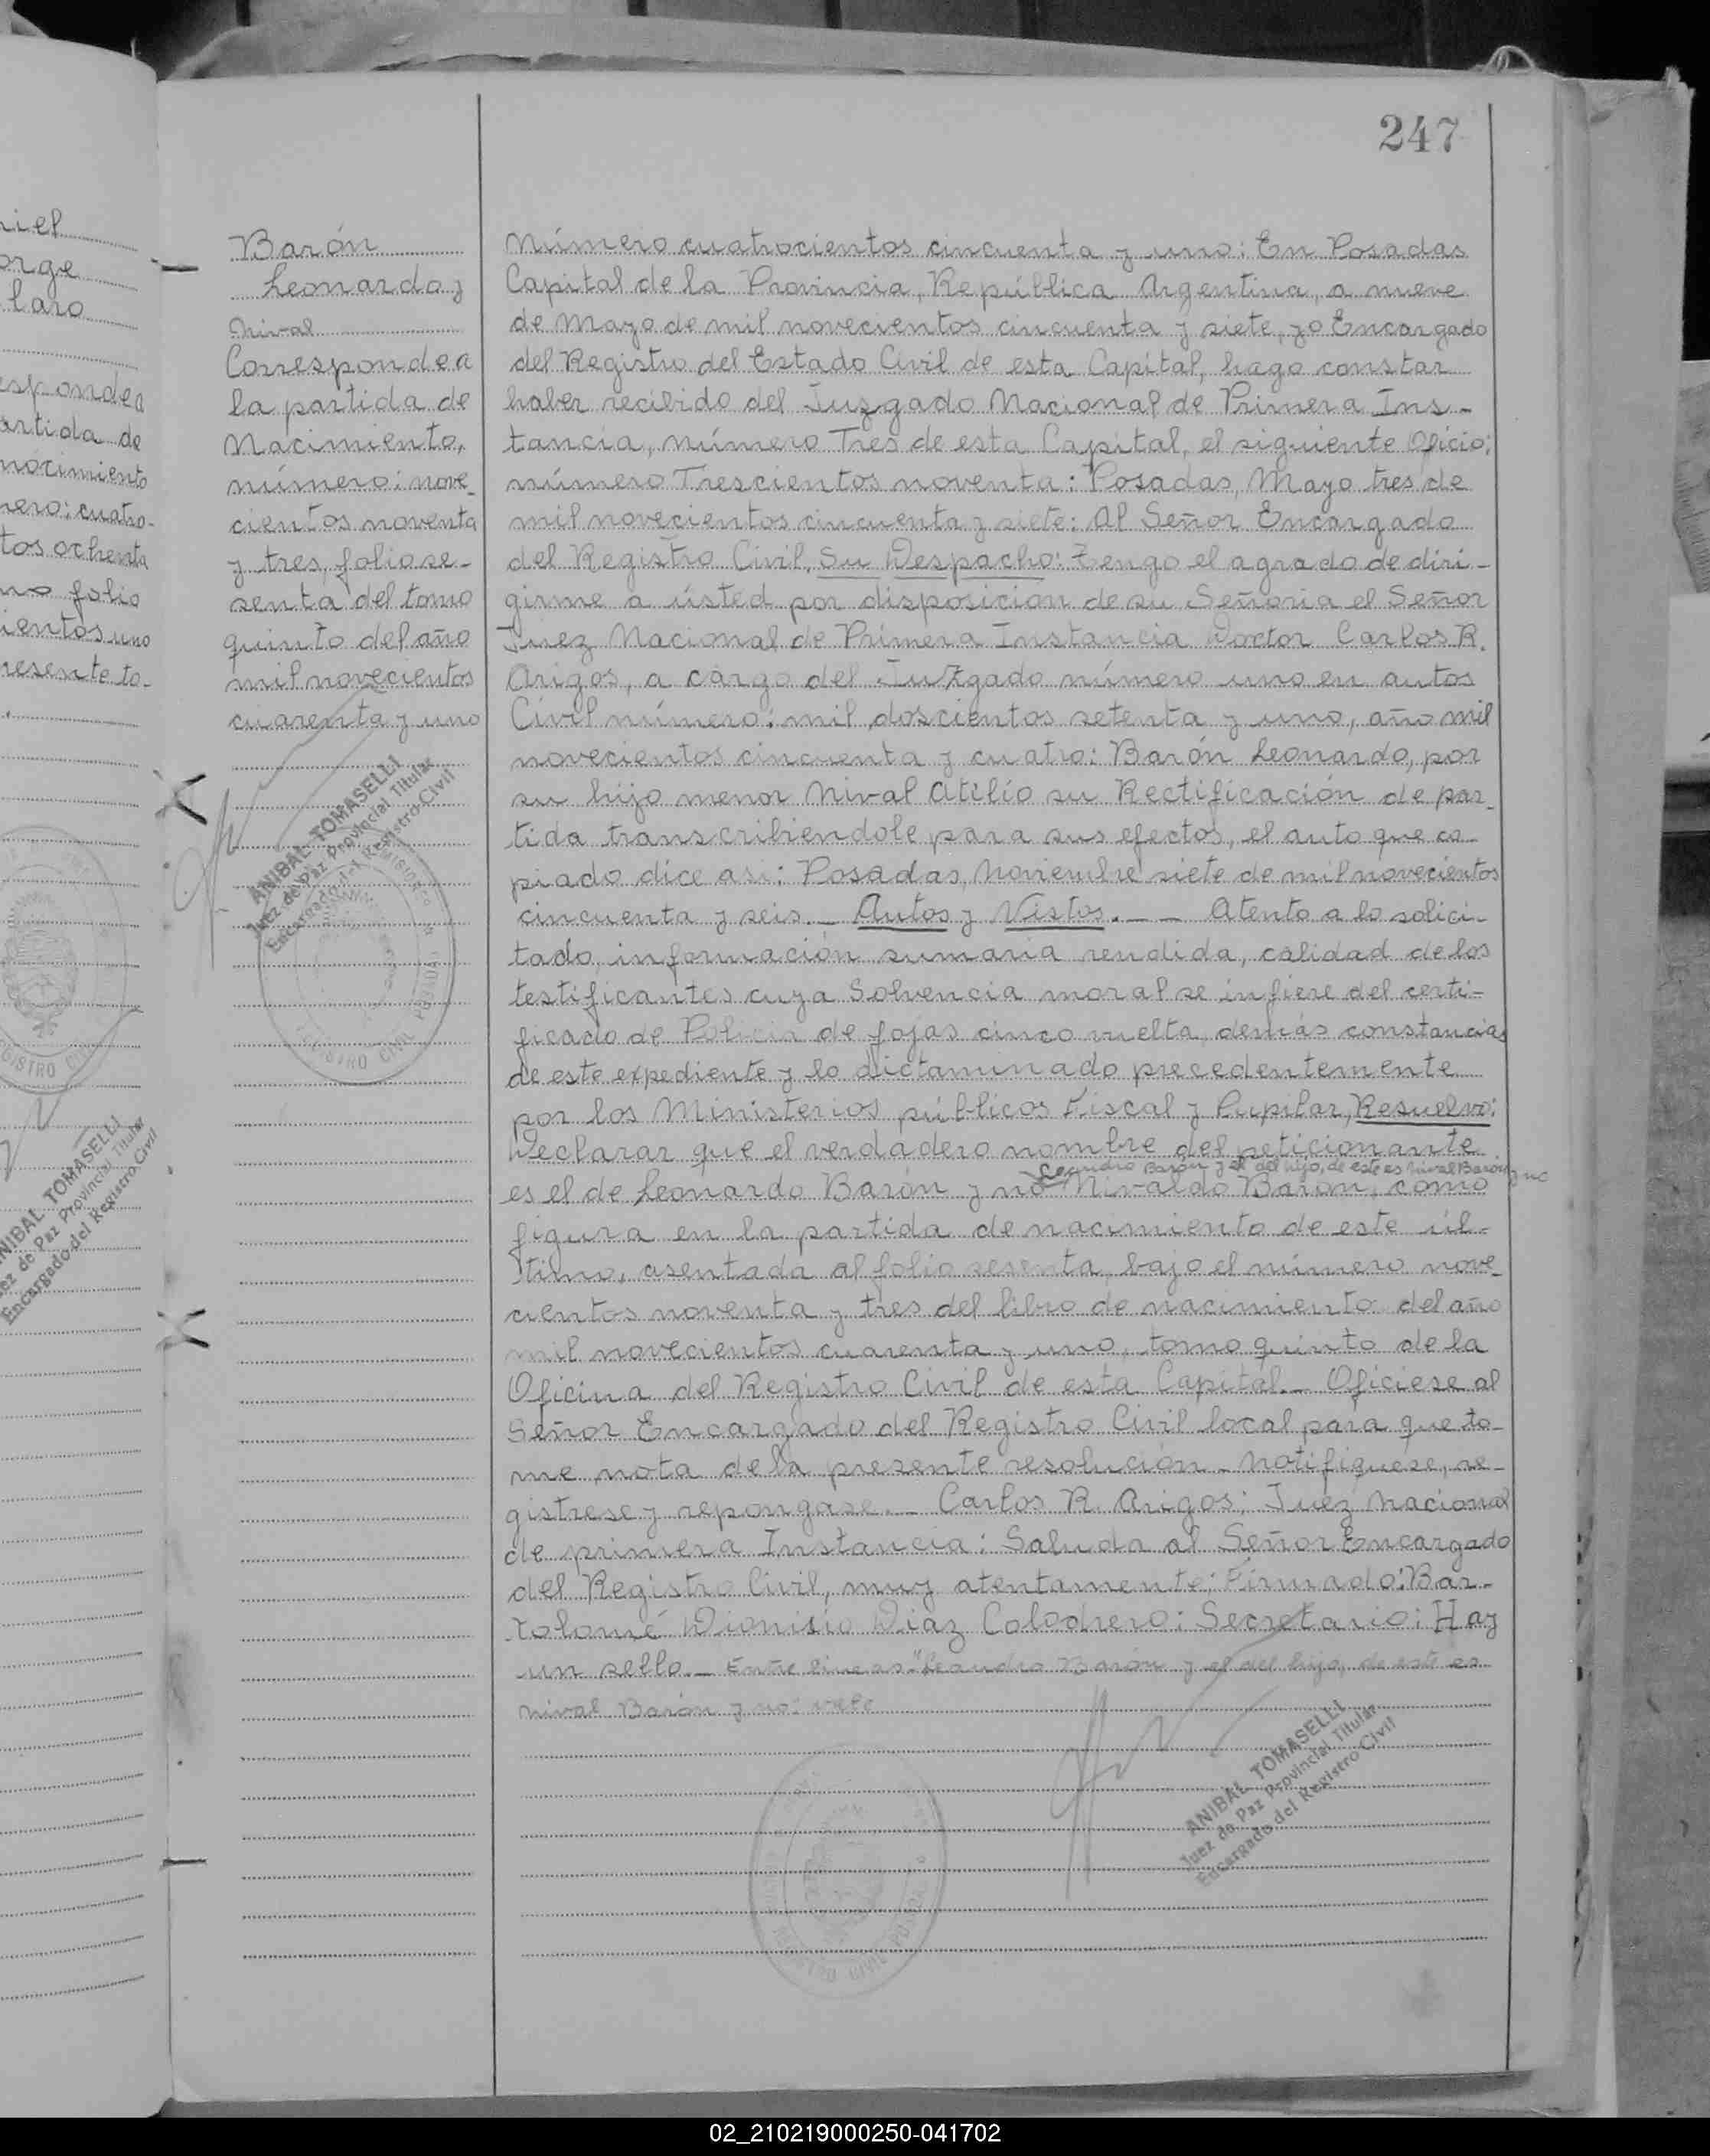 247
riel
orge
laro
esponde a
artida de
nocimiento
nero: cuatro-
tos ochenta
folio
ientos uno
resente to-
Barón
Leonardo y
Nival
Corresponde a
la partida de
Nacimiento,
número: nove-
cientos noventa
y tres, folio se-
senta del tomo
quinto del año
mil novecientos
cuarenta y uno
ANIBAL TOMASELLI
Juez de Paz Provincial Titular
Encargado del Registro Civil
REGISTRO CIVIL POSADAS
Número cuatrocientos cincuenta y uno: En Posadas
Capital de la Provincia, República Argentina, a nueve
de Mayo de mil novecientos cincuenta y siete, yo Encargado
del Registro del Estado Civil de esta Capital, hago constar
haber recibido del Juzgado Nacional de Primera Ins-
tancia, número Tres de esta Capital, el siguiente Oficio:
número Trescientos noventa: Posadas, Mayo tres de
mil novecientos cincuenta y siete: Al Señor Encargado
del Registro Civil, Su Despacho: Tengo el agrado de diri-
girme a usted por disposicion de su Señoria el Señor
Juez Nacional de Primera Instancia Doctor Carlos R.
Arigos, a cargo del Juzgado número uno en autos
Civil número: mil doscientos setenta y uno, año mil
novecientos cincuenta y cuatro: Barón Leonardo, por
su hijo menor Nival Atilio su Rectificación de par-
tida transcribiendole para sus efectos, el auto que co-
piado dice asi: Posadas, Noviembre siete de mil novecientos
cincuenta y seis.- Autos y Vistos.- - Atento a lo solici-
tado, información sumaria rendida, calidad de los
testificantes cuya Solvencia moral se infiere del certi-
ficado de Policia de fojas cinco vuelta, demás constancias
de este expediente y lo dictaminado precedentemente
por los Ministerios públicos Fiscal y Pupilar, Resuelvo:
Declarar que el verdadero nombre del peticionante
Leandro Barón y el del hijo, de este es Nival Barón y no
es el de Leonardo Barón y no Nivaldo Barón, como
figura en la partida de nacimiento de este úl-
timo, asentada al folio sesenta, bajo el número nove-
cientos noventa y tres del libro de nacimiento del año
mil novecientos cuarenta y uno, tomo quinto de la
Oficina del Registro Civil de esta Capital.- Oficiese al
Señor Encargado del Registro Civil local para que to-
me nota de la presente resolución - Notifiquese, re-
gistrese y repongase.- Carlos R. Arigos: Juez Nacional
de primera Instancia: Saluda al Señor Encargado
del Registro Civil, muy atentamente: Firmado: Bar-
tolomé Dionisio Diaz Colodrero: Secretario: Hay
un sello.- Entre lineas "Leandro Barón y el del hijo, de este es
Nival Barón y no: vale
ANIBAL TOMASELLI
Juez de Paz Provincial Titular
Encargado del Registro Civil
ANIBAL TOMASELLI
Juez de Paz Provincial Titular
Encargado del Registro Civil
02_210219000250-041702